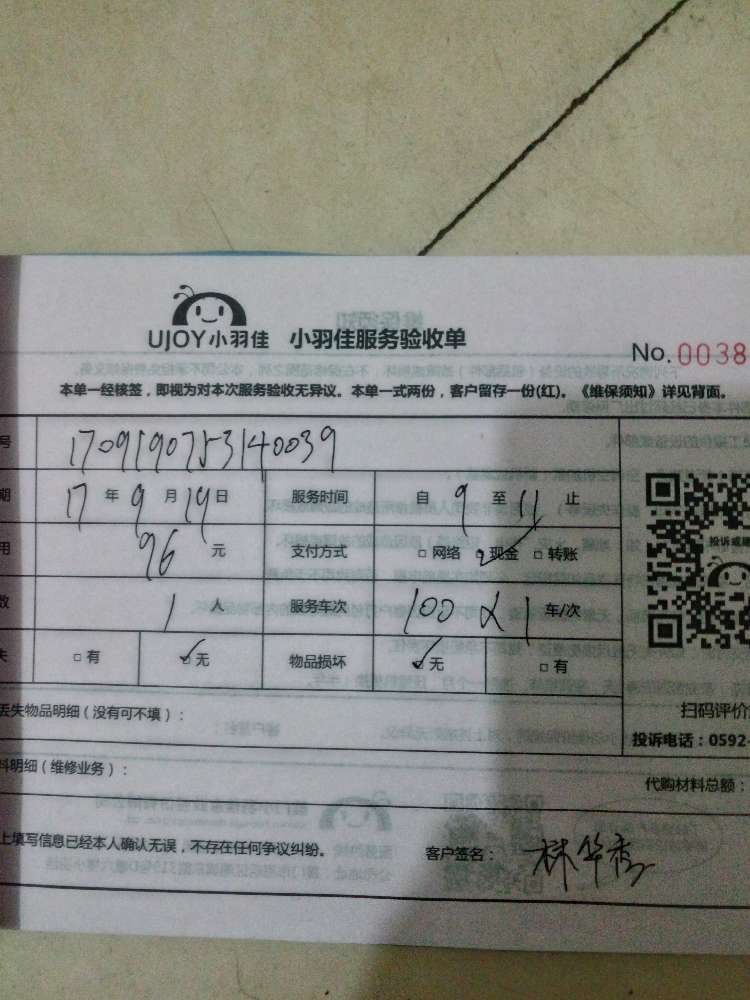 UJOY小羽佳 小羽佳服务验收单
No.0038
本单一经核签，即视为对本次服务验收无异议。本单一式两份，客户留存一份(红)。《维保须知》详见背面。
号 1709190753140039
期 17年9月19日 服务时间 自9至11止
用 96元 支付方式 □网络 现金 □转账
数 1人 服务车次 100 1 车/次
失 □有 ✓无 物品损坏 ✓无 □有
投诉或建
扫码评价
丢失物品明细（没有可不填）：
投诉电话：0592-
料明细（维修业务）：
代购材料总额：
上填写信息已经本人确认无误，不存在任何争议纠纷。
客户签名：林华